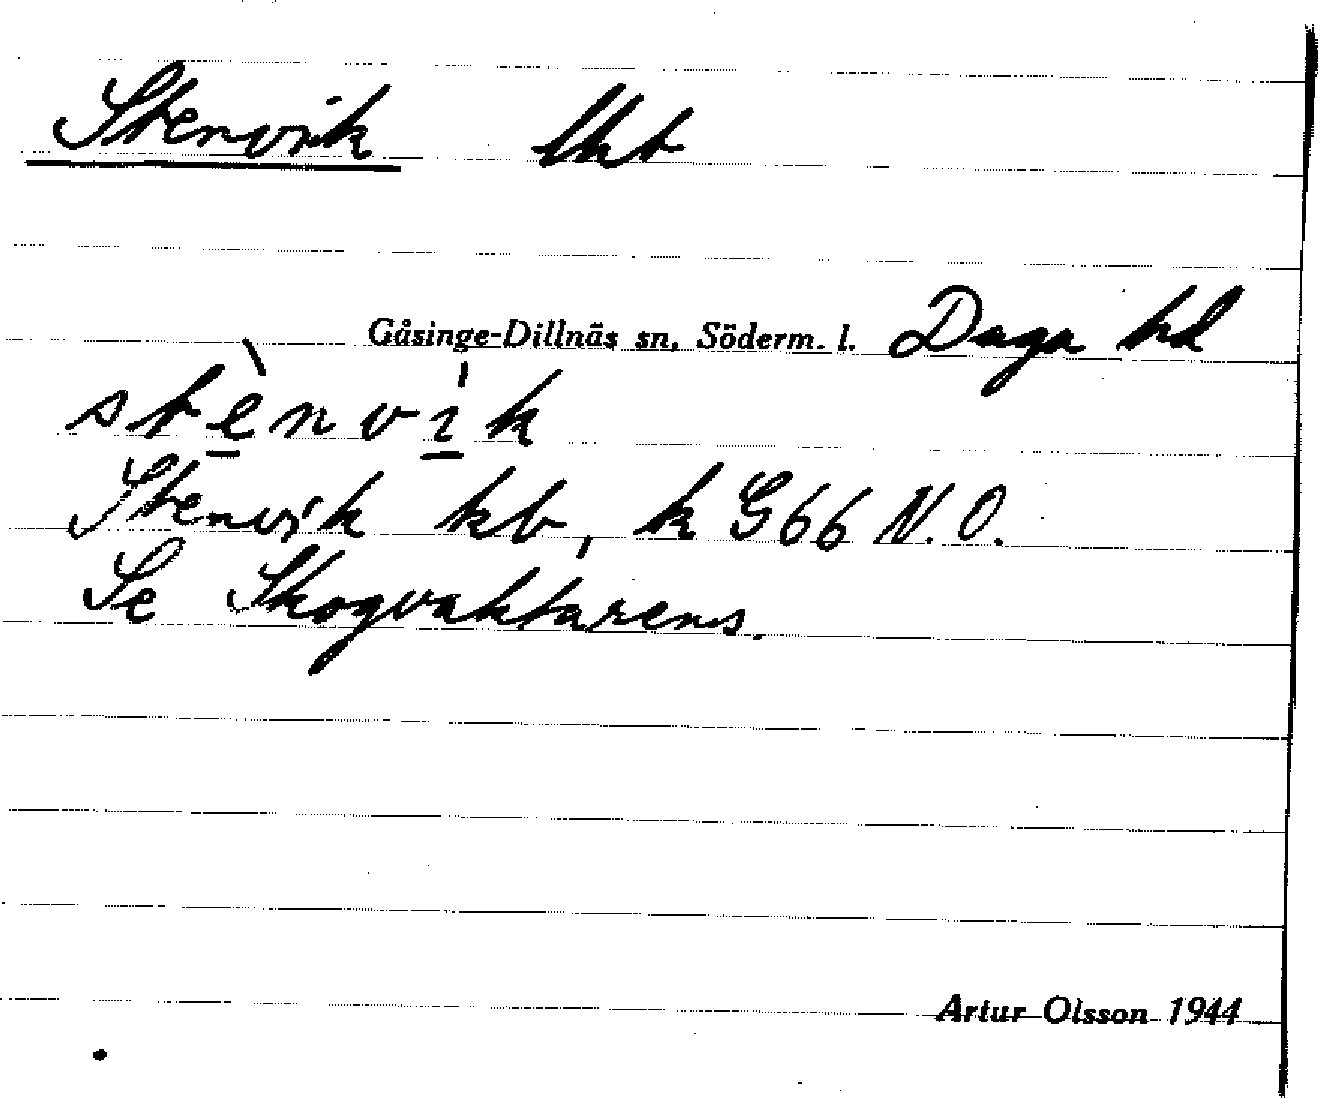 Stenvik lht
Gåsinge-Dillnäs sn, Söderm. l. Daga hd
stènvi̍k
Stenvik kb, k G66 N.O.
Se Skogvaktarens.
Artur Olsson 1944